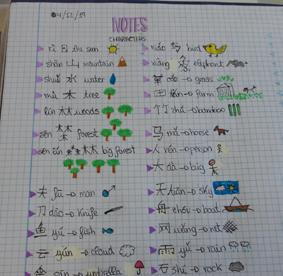 04/12/17
NOTES
CHARACTERS
rì 日 sun
shān 山 mountain
shuǐ 水 water
mù 木 → tree
lín 林 woods
sēn 森 forest
big forest
夫 fū → man
刀 dāo → knife
鱼 yú → fish
云 yún → cloud
sǎn → umbrella
niǎo bird
elephant
cǎo → grass
田 tián → farm
竹 zhú → bamboo
马 mǎ → horse
人 rén → person
大 dà → big
天 tiān → sky
舟 zhōu → boat
网 wǎng → net
雨 yǔ → rain
石 shí → rock